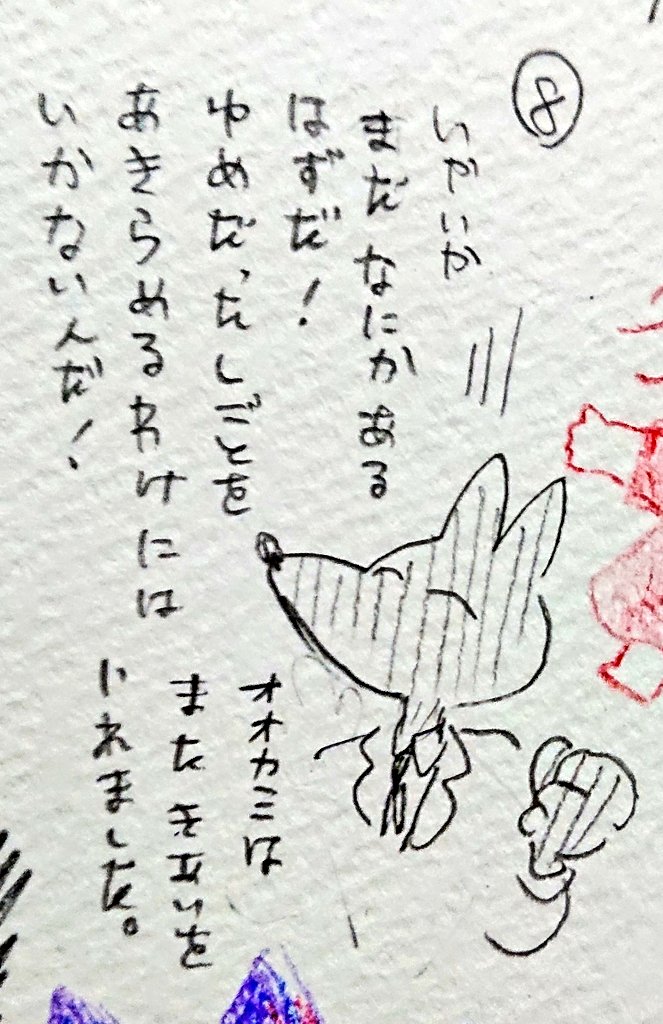 ⑧
いやいや
まだ なにかある
はずだ!
ゆめだったしごとを
あきらめるわけには
いかないんだ!
オオカミは
また きあいを
いれました。